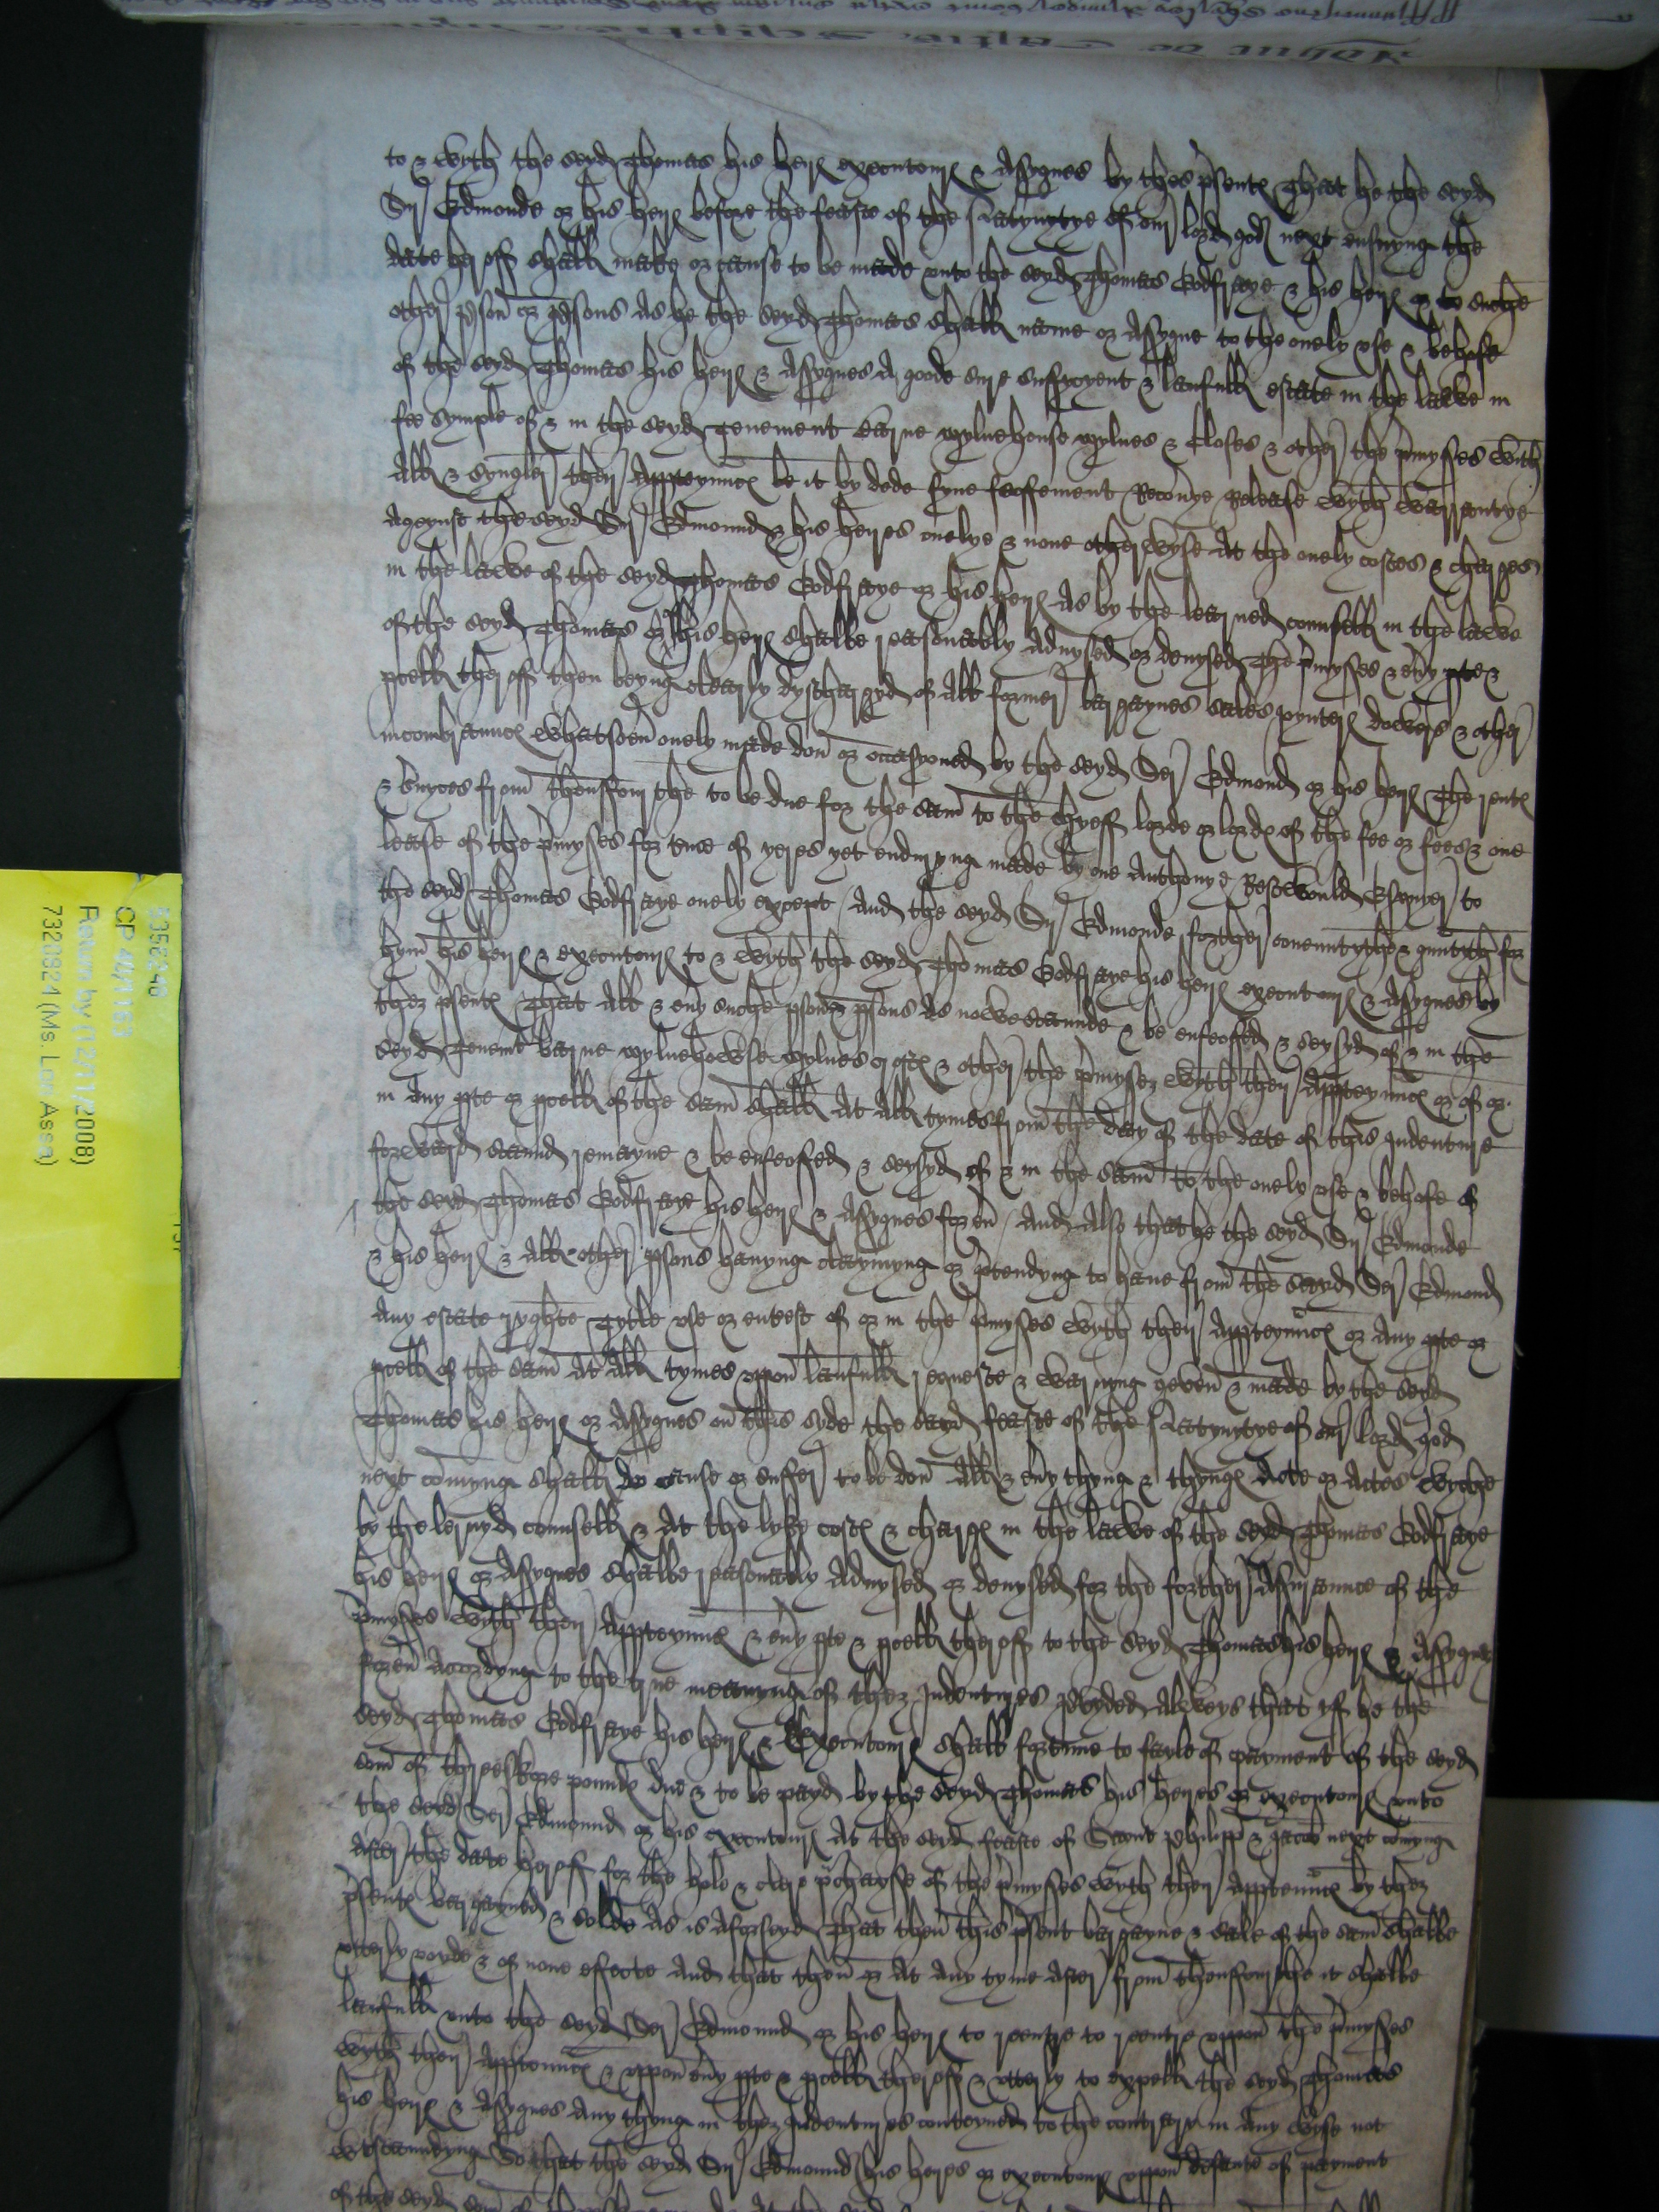 to & wyth the seyd Thomas his heirs executours & Assygnes by thes psentes That he the seyd
Syr Edmonde or his heirs before the feaste of the Natyvytye of our lord god next ensuyng the
date heroff shall make or cause to be made unto the seyd Thomas Godfraye & his heirs or to suche
other pson or psons as he the seyd Thomas shall name or Assygne to the onely use & behofe
of the seyd Thomas his heirs & Assygnes A goode sure suffycyent & laufull estate in the lawe in
fee symple of & in the seyd Tenement barne mylnehouse mylnes & Closes & other the pmysses with
All & syngler their Appteynnces be it by dede fyne feoffement Recovye Release wyth warrantye
Ageynst the seyd Syr Edmound & his heyres onelye & none otherwyse At the onely costes & charges
in the lawe of the seyd Thomas Godfraye or his heirs As by the learned counsell in the lawe
of the seyd Thomas or his heirs shalbe reasonably Advysed or devysed The pmysses & evy pte &
pcell theroff then beyng clearly dyschargyd of All former bargaynes sales joynters dowers & other
incombrannces whatsoev onely made don or occasyoned by the seyd Ser Edmond or his heirs The rentes
& svyces from thensforthe to be due for the sam to the chyeff lorde or lordes of the fee or fees & one
lease of the pmysses for tme of yeres yet enduryng made by one Anthonye Restwould Esquyer to
the seyd Thomas Godfraye onely except / And the seyd Syr Edmonde forther covenntythe & gunntyth for
hym his heirs & executours to & wyth the seyd Thomas Godfraye his heirs executours & Assygnes by
thez psentes That All & evy suche pson or psons As nowe stannde & be enfeoffed & seysyd of & in the
seyd Tenemt barne mylnehowse mylnes croftes & other the pmysez wyth their Appteynnces or of or
in Any pte or pcell of the sam shall At All tymes from the day of the date of this Indenture
forward stannd remayne & be enfeoffed & seysyd of & in the sam to the onely use & behofe of
the seyd Thomas Godfraye his heirs & Assygnes forev / And Also that he the seyd Syr Edmonde
& his heirs & All other psons havyng claymyng or ptendyng to have from the seyd Ser Edmond
Any estate ryghte Tytle use or enterest of or in the pmysses wyth their Appteynnces or Any pte or
pcell of the sam At All tymes uppon laufull requeste & warnyng geven & made by the seyd
Thomas his heirs or Assygnes on this syde the sayd feaste of the Natyvytye of our lord god
next comyng shall do cause or suffer to be don All & evy thyng & thynges Acte or Actes wyche
by the lernyd counsell & At the lyke costes & charges in the lawe of the seyd Thomas Godfraye
his heirs or Assygnes shalbe reasonably Advysed or devysed for the forther Assurannce of the
pmysses wyth their Appteynnces & evy pte & pcell theroff to the seyd Thomas his heirs & Assygnes
forev Accordyng to the true meanyng of thez Indentures pvyded Alweys that yf he the
seyd Thomas Godfraye his heirs & Executours shall fortune to fayle of payment of the seyd
som of threeskore poundes due & to be payd by the seyd Thomas his heyres or executours unto
the seyd Ser Edmound or his executours At the seyd feaste of Seynt Philipp & Jacob next comyng
After the date heroff for the hole & clere pchasse of the pmysses wyth their Apptennces by thez
psentes bargayned & solde As is Aforseyd That then this psent bargayne & sale of the sam shalbe
utterly voyde & of none effecte And that then or At Any tyme After from thensforthe it shalbe
laufull unto the seyd Ser Edmound or his heirs to reentre to reentre uppon the pmysses
wyth their Apptennces & uppon evy pte & pcell theroff & utterly to expell the seyd Thomas
his heirs & Assygnes Any thyng in thez Indentures conteyned to the contrary in Any wyse not
wtstanndyng So that the seyd Syr Edmound his heyres or executours uppon defaute of payment
of the seyd som of
5358246
CP 40/1153
Return by (12/11/2008)
7320824 (Ms. Lori Assa)